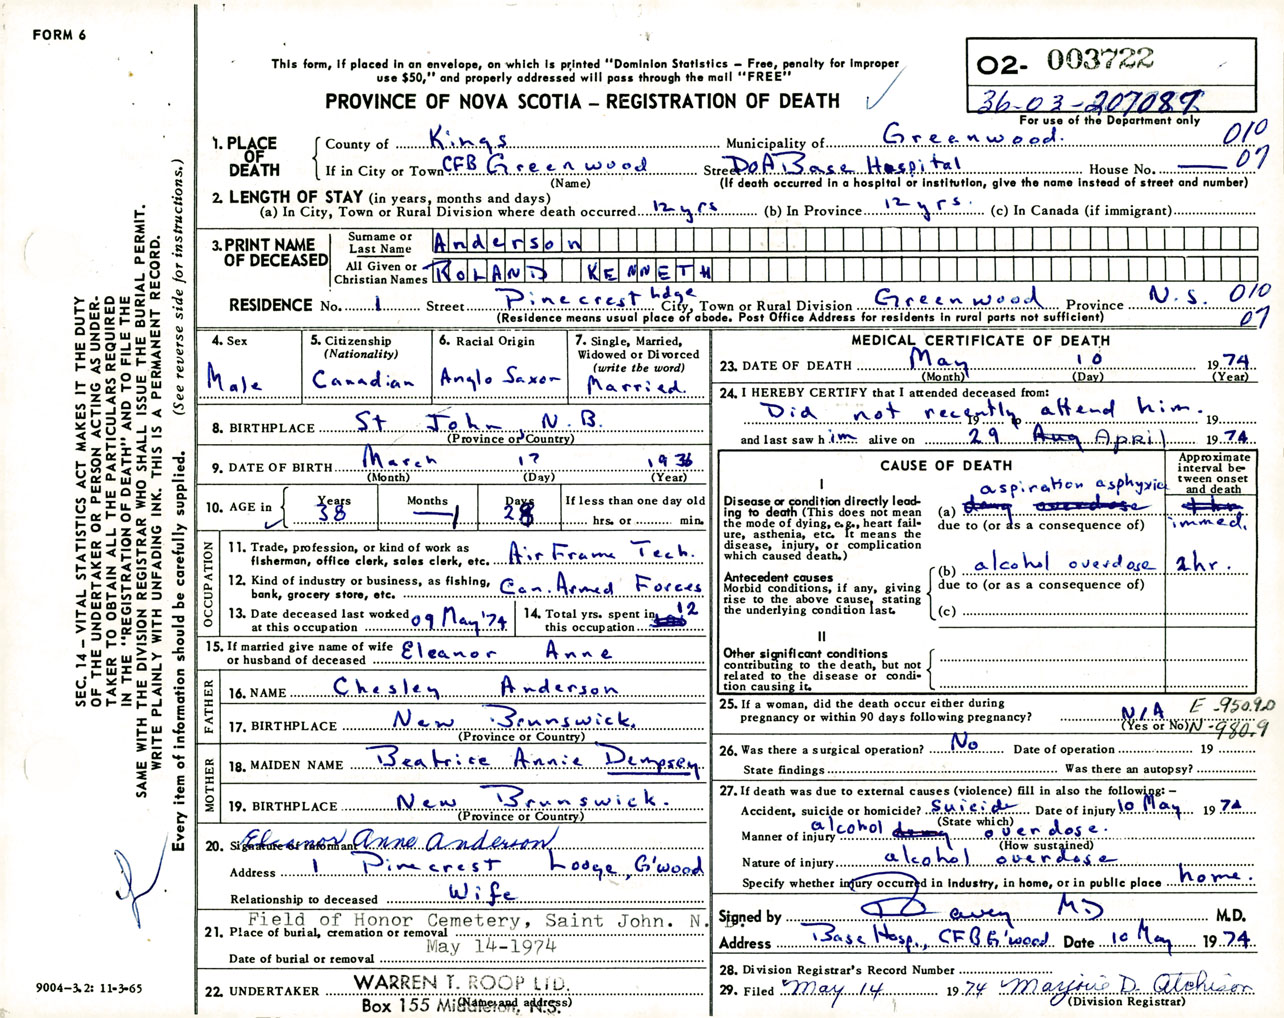 FORM 6
This form, if placed in an envelope, on which is printed "Dominion Statistics – Free, penalty for improper
use $50," and properly addressed will pass through the mail "FREE"
PROVINCE OF NOVA SCOTIA – REGISTRATION OF DEATH
02- 003722
36-03-207087
For use of the Department only
1. PLACE OF DEATH
County of Kings Municipality of Greenwood. 010
If in City or Town CFB Greenwood Street DOA Base Hospital House No. — 07
(Name) (If death occurred in a hospital or institution, give the name instead of street and number)
2. LENGTH OF STAY (in years, months and days)
(a) In City, Town or Rural Division where death occurred 12 yrs (b) In Province 12 yrs. (c) In Canada (if immigrant)
3. PRINT NAME OF DECEASED
Surname or Last Name Anderson
All Given or Christian Names ROLAND KENNETH
RESIDENCE No. 1 Street Pinecrest Ldge City, Town or Rural Division Greenwood Province N.S. 010
(Residence means usual place of abode. Post Office Address for residents in rural parts not sufficient) 07
4. Sex
Male
5. Citizenship
(Nationality)
Canadian
6. Racial Origin
Anglo Saxon
7. Single, Married,
Widowed or Divorced
(write the word)
Married.
8. BIRTHPLACE St John, N.B.
(Province or Country)
9. DATE OF BIRTH March 17 1936
(Month) (Day) (Year)
10. AGE in Years 38 Months 1 Days 28 If less than one day old
hrs. or min.
OCCUPATION
11. Trade, profession, or kind of work as
fisherman, office clerk, sales clerk, etc. Air Frame Tech.
12. Kind of industry or business, as fishing,
bank, grocery store, etc. Can. Armed Forces
13. Date deceased last worked
at this occupation 09 May '74
14. Total yrs. spent in
this occupation 12
15. If married give name of wife
or husband of deceased Eleanor Anne
FATHER
16. NAME Chesley Anderson
17. BIRTHPLACE New Brunswick.
(Province or Country)
MOTHER
18. MAIDEN NAME Beatrice Annie Dempsey
19. BIRTHPLACE New Brunswick.
(Province or Country)
20. Signature of informant Eleanor Anne Anderson
Address 1 Pinecrest Lodge, G'wood
Relationship to deceased Wife
Field of Honor Cemetery, Saint John. N.
21. Place of burial, cremation or removal
May 14-1974
Date of burial or removal
WARREN T. ROOP LTD.
22. UNDERTAKER
(Name and address)
Box 155 Middleton, N.S.
MEDICAL CERTIFICATE OF DEATH
23. DATE OF DEATH May 10 1974
(Month) (Day) (Year)
24. I HEREBY CERTIFY that I attended deceased from:
Did not recently attend him.
19 to 19
and last saw him alive on 29 Aug April 1974
CAUSE OF DEATH
Approximate
interval be-
tween onset
and death
I
Disease or condition directly lead-
ing to death (This does not mean
the mode of dying, e.g., heart fail-
ure, asthenia, etc. It means the
disease, injury, or complication
which caused death.)
aspiration asphyxia
(a) drug overdose immed.
due to (or as a consequence of)
Antecedent causes
Morbid conditions, if any, giving
rise to the above cause, stating
the underlying condition last.
(b) alcohol overdose 2 hr.
due to (or as a consequence of)
(c)
II
Other significant conditions
contributing to the death, but not
related to the disease or condi-
tion causing it.
25. If a woman, did the death occur either during
pregnancy or within 90 days following pregnancy? N/A
(Yes or No)
E-950.90
N-980.9
26. Was there a surgical operation? No Date of operation 19
State findings Was there an autopsy?
27. If death was due to external causes (violence) fill in also the following: –
Accident, suicide or homicide? Suicide Date of injury 10 May 1974
(State which)
Manner of injury alcohol drug overdose.
(How sustained)
Nature of injury alcohol overdose
Specify whether injury occurred in Industry, in home, or in public place home.
Signed by Davey MD M.D.
Address Base Hosp., CFB G'wood Date 10 May 1974
28. Division Registrar's Record Number
29. Filed May 14 1974 Marjorie D. Atchison
(Division Registrar)
SEC. 14 – VITAL STATISTICS ACT MAKES IT THE DUTY
OF THE UNDERTAKER OR PERSON ACTING AS UNDER-
TAKER TO OBTAIN ALL THE PARTICULARS REQUIRED
IN THE "REGISTRATION OF DEATH" AND TO FILE THE
SAME WITH THE DIVISION REGISTRAR WHO SHALL ISSUE THE BURIAL PERMIT.
WRITE PLAINLY WITH UNFADING INK. THIS IS A PERMANENT RECORD.
Every item of information should be carefully supplied. (See reverse side for instructions.)
9004-3.2: 11-3-65